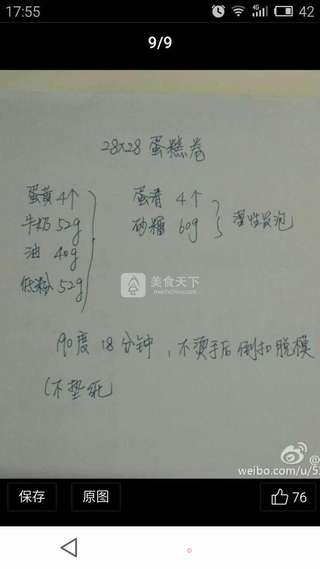 17:55
42
9/9
28x28 蛋糕卷
蛋黄 4个
牛奶 52g
油 40g
低粉 52g
蛋清 4个
砂糖 60g
湿性发泡
美食天下
meishichina.com
190度 18分钟，不烫手后倒扣脱模
(不垫纸)
@
weibo.com/u/5
保存
原图
76